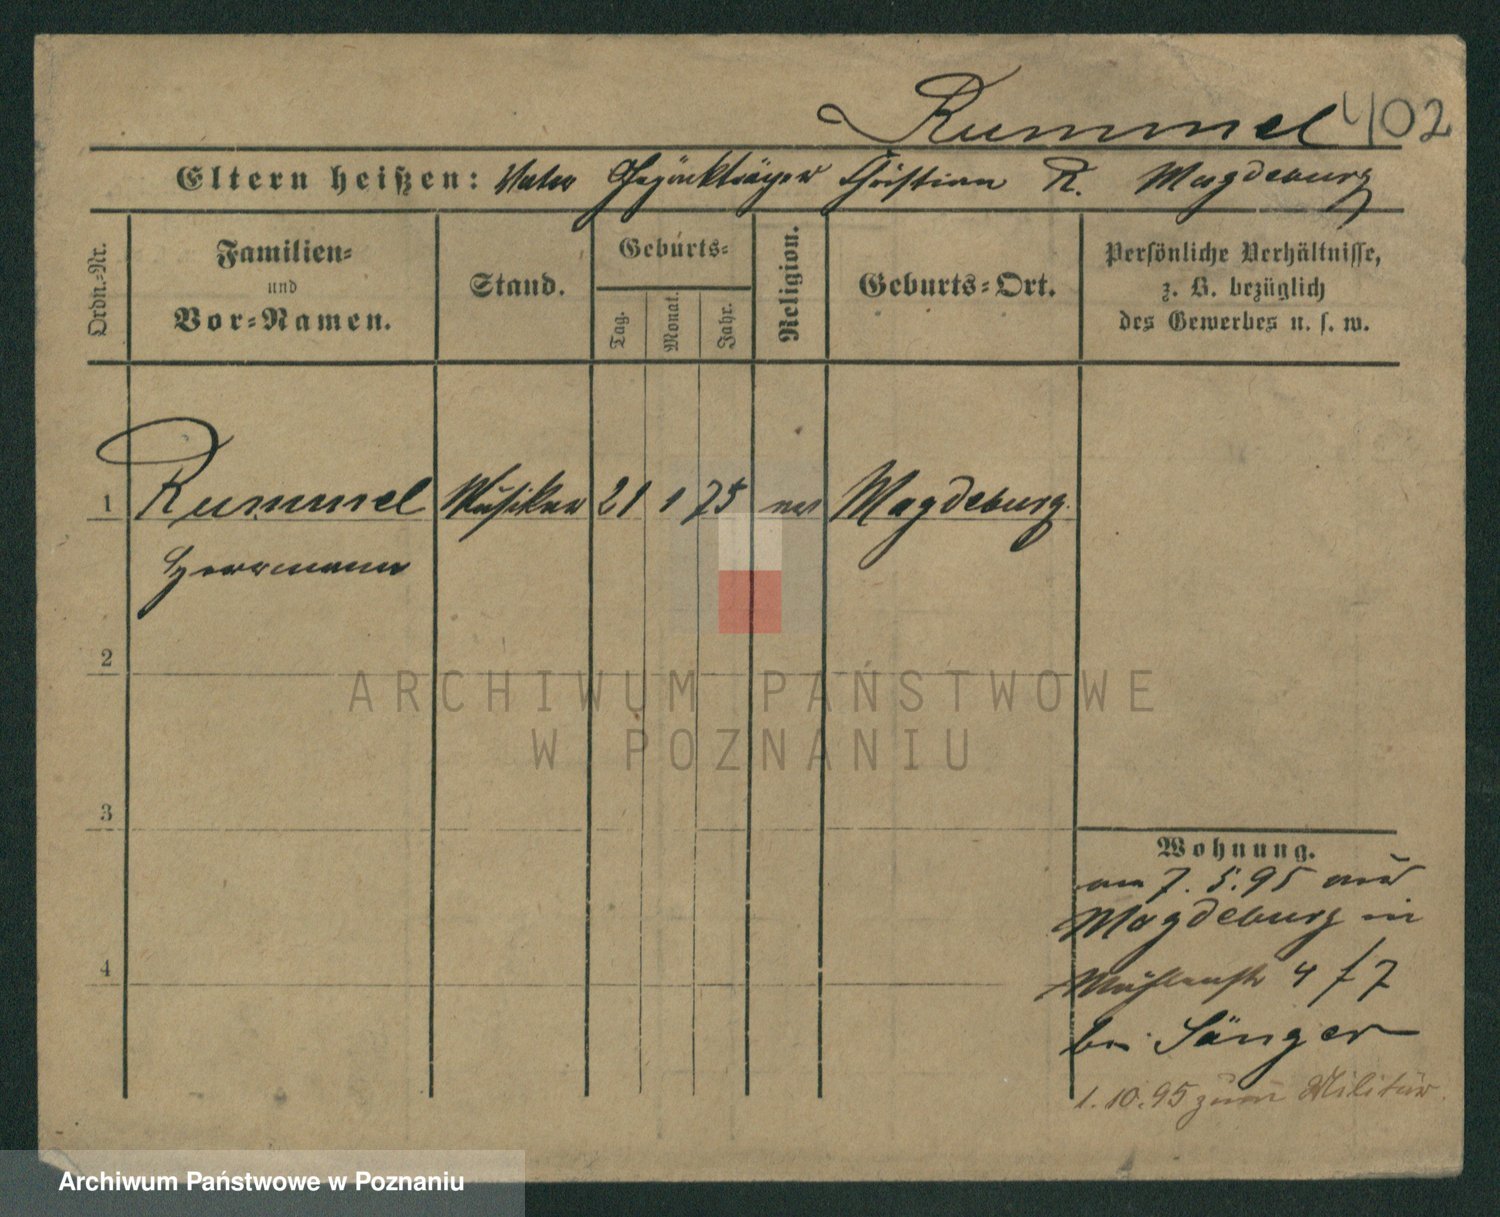 Rummel 402
Eltern heißen: Vater Gepäckträger Christian R. Magdeburg
Ordn.-Nr.
Familien-
und
Vor-Namen.
Stand.
Geburts-
Tag.
Monat.
Jahr.
Religion.
Geburts-Ort.
Persönliche Verhältnisse,
z. B. bezüglich
des Gewerbes u. s. w.
1 Rummel Musiker 21 1 75 ev Magdeburg
Herrmann
2
3
4
Wohnung.
am 7.5.95 aus
Magdeburg in
Mühlenstr 4 f 7
bei Sänger
1.10.95 zum Militär.
ARCHIWUM PAŃSTWOWE
W POZNANIU
Archiwum Państwowe w Poznaniu